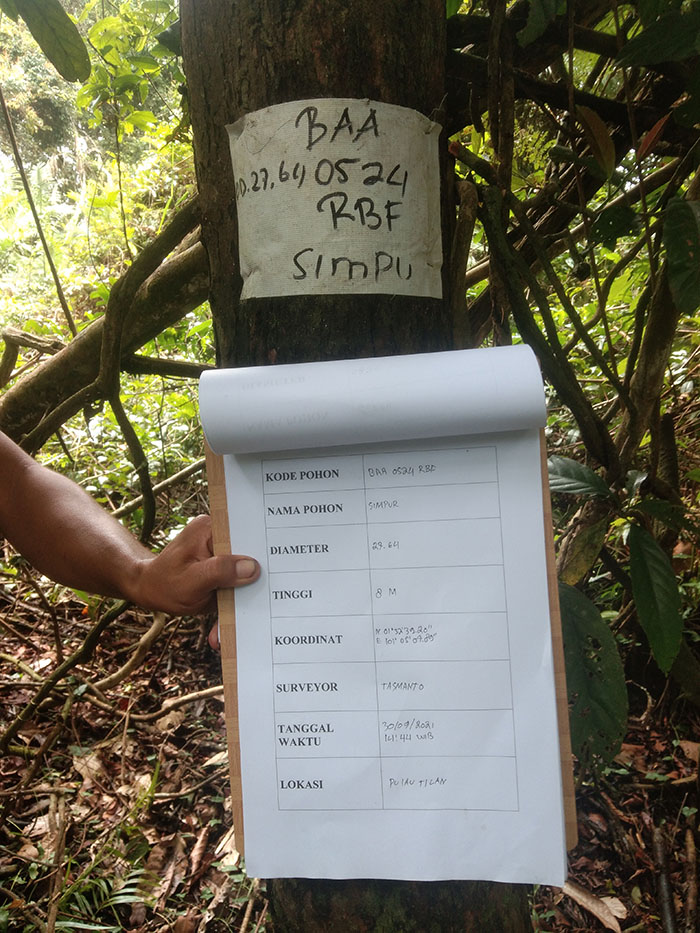 BAA
D.27,64 0524
RBF
SIMPU
KODE POHON BAA 0524 RBF
NAMA POHON SIMPUR
DIAMETER 27.64
TINGGI 8 M
KOORDINAT N 01°32'39.20"
E 101°05'07.89"
SURVEYOR TASMANTO
TANGGAL 30/09/2021
WAKTU 14:44 WIB
LOKASI PULAU TILAN